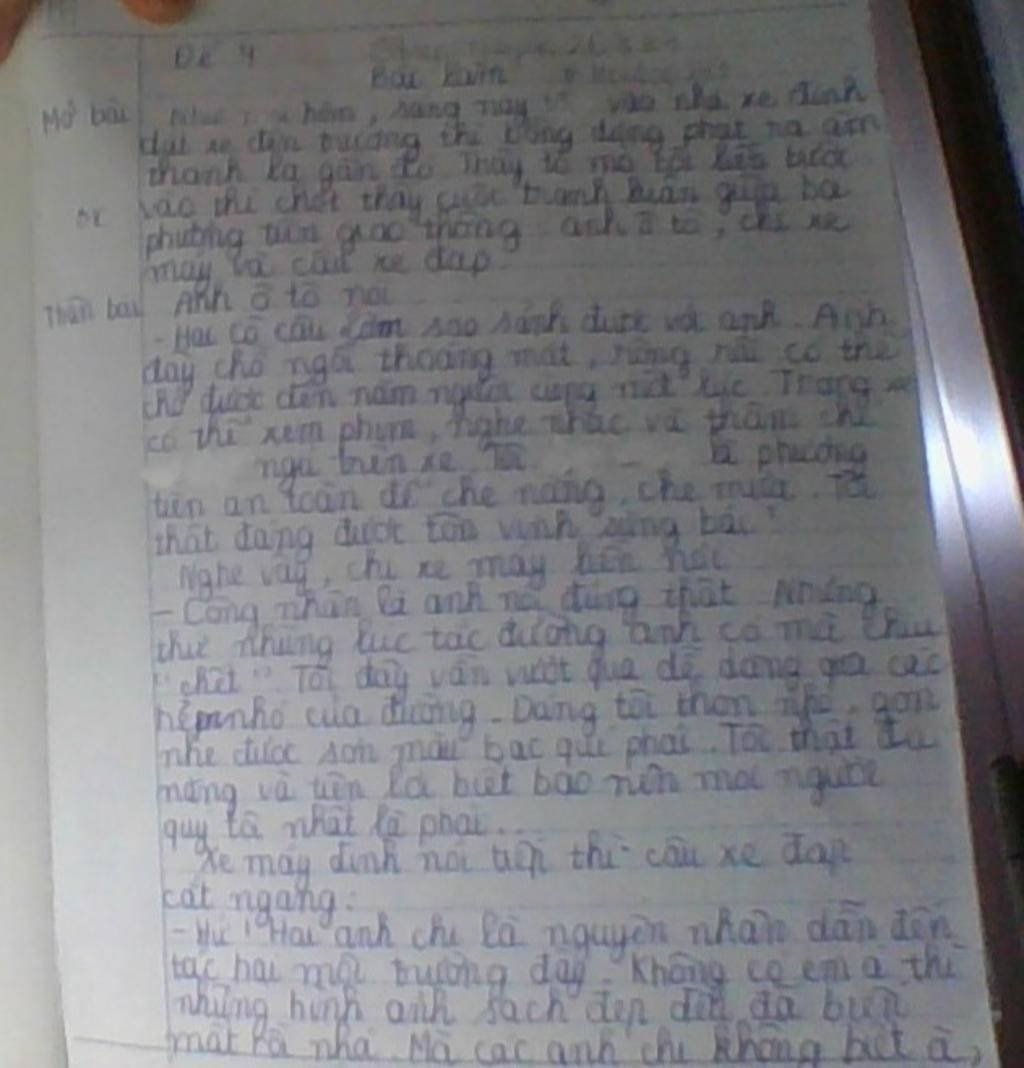 Đề 4
Bài làm
Mở bài hôm, sáng nay vào nhà xe định
dắt xe đến trường thì bỗng dưng phát ra âm
thanh lạ gần đó. Thấy tò mò tôi liền bước
vào thì chợt thấy cuộc tranh luận giữa ba
phương tiện giao thông: anh ô tô, chị xe
máy và cậu xe đạp.
Thân bài Anh ô tô nói
- Hai cô cậu làm sao sánh được với anh. Anh
đây chỗ ngồi thoáng mát, rộng rãi có thể
chở được đến năm người cùng một lúc. Trong xe
có thể xem phim, nghe nhạc và thậm chí
ngủ trên xe. Tôi là phương
tiện an toàn để che nắng, che mưa. Tôi
thật đáng được tôn vinh sùng bái!
Nghe vậy, chị xe máy liền nói
- Công nhận là anh nói đúng thật. Nhưng
thử những lúc tắc đường anh có mà chịu
"chết". Tôi đây vẫn vượt qua dễ dàng qua các
hẻm nhỏ của đường. Dáng tôi thon nhỏ, gọn
nhẹ được sơn màu bạc quí phái. Tôi thật đa
năng và tiện lợi biết bao nên mọi người
quý tôi nhất là phải...
Xe máy định nói tiếp thì cậu xe đạp
cắt ngang:
- Hứ! Hai anh chị là nguyên nhân dẫn đến
tác hại môi trường đấy. Không có em á thì
những hình ảnh sạch đẹp đến đã biến
mất rồi nha. Mà các anh chị không biết à,